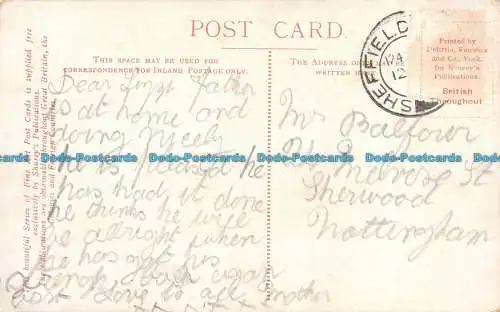 POST CARD.
THIS SPACE MAY BE USED FOR
CORRESPONDENCE FOR INLAND POSTAGE ONLY.
THE ADDRESS
WRITTEN
SHEFFIELD
12
Printed by
and Co., York,
for
Publications.
British
Throughout
This beautiful Series of Fine Art Post Cards is supplied free
exclusively by Shurey's Publications.
obtainable throughout Great Britain, the
Colonies and Foreign Countries.
Dear Father
is at home and
doing nicely
he is pleased he
has had it done
he thinks he will
be allright when
he has got his
strength back again
love to all Mother
Mr Balfour
Melrose St
Sherwood
Nottingham
Dodo-Postcards Dodo-Postcards Dodo-Postcards Dodo-Postcards